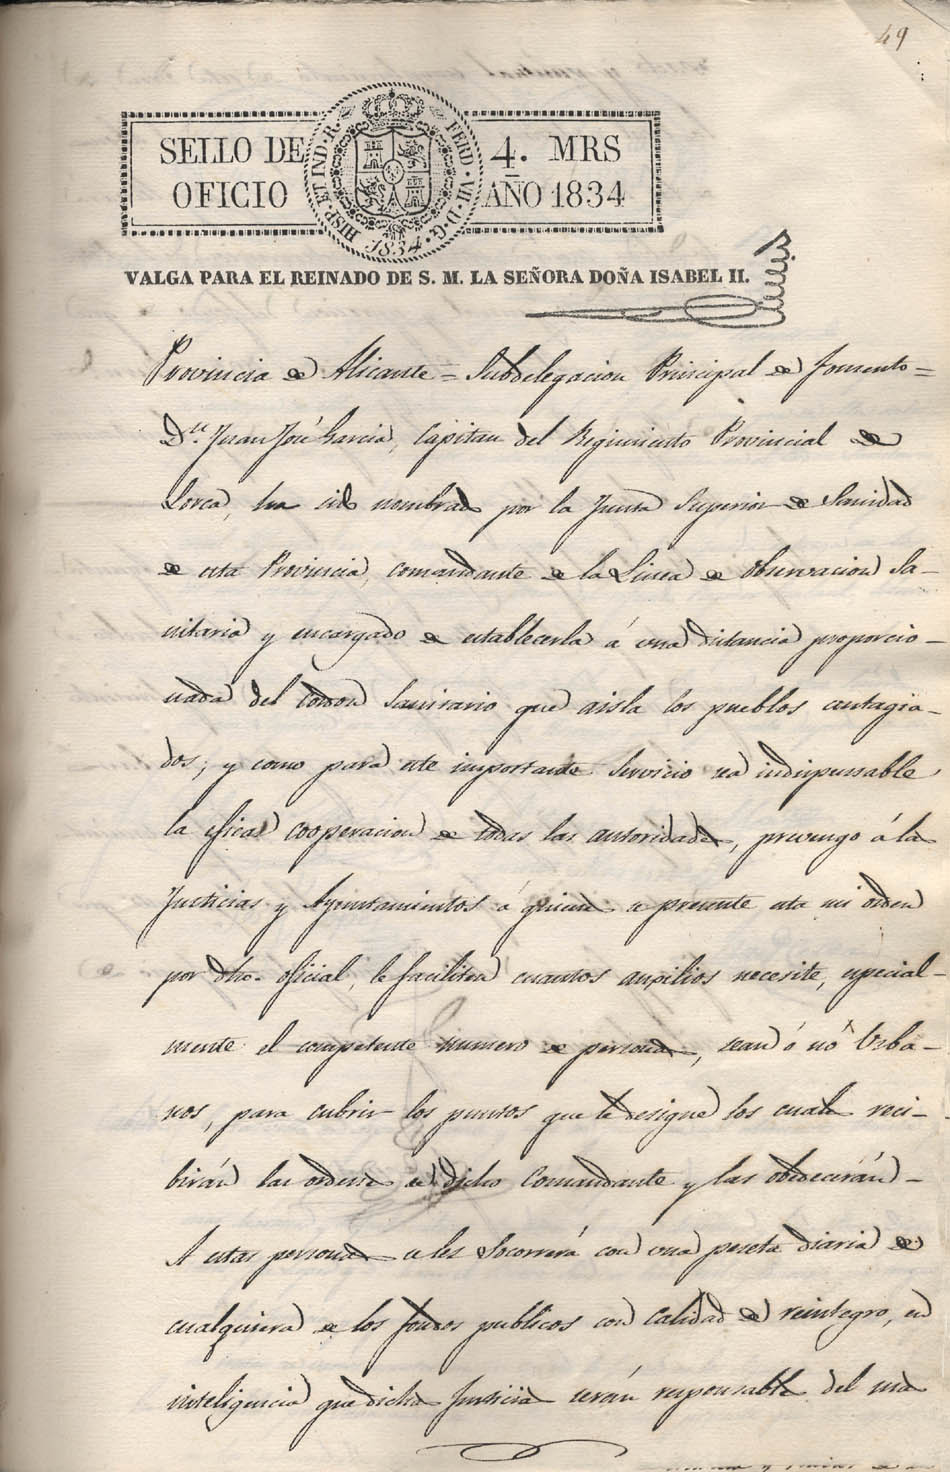 49
SELLO DE 4. MRS
OFICIO AÑO 1834
HISP. ET IND. R. FERD. VII. D. G. 1834.
VALGA PARA EL REINADO DE S. M. LA SEÑORA DOÑA ISABEL II.
Provincia de Alicante = Subdelegacion Principal de Fomento =
Dn. Juan José Garcia, Capitan del Regimiento Provincial de
Lorca, ha sido nombrado por la Junta Superior de Sanidad
de esta Provincia, comandante de la Linea de Observacion Sa-
nitaria y encargado de establecerla á una distancia proporcio-
nada del cordon Sanitario que aisla los pueblos contagia-
dos; y como para este importante Servicio sea indispensable
la eficas cooperacion de todas las autoridades, prevengo á la
Justicias y Ayuntamientos á quienes se presente esta mi orden
por dho. oficial, le faciliten cuantos auxilios necesite, especial-
mente el competente numero de personas, sean ó nó Urba-
nos, para cubrir los puntos que le designe los cuales reci-
birán las ordenes de dicho Comandante y las obedecerán -
A estas personas se les Socorrerá con una peseta diaria de
cualquiera de los fondos publicos con calidad de reintegro, en
inteligencia que dichas Justicias serán responsables del mas